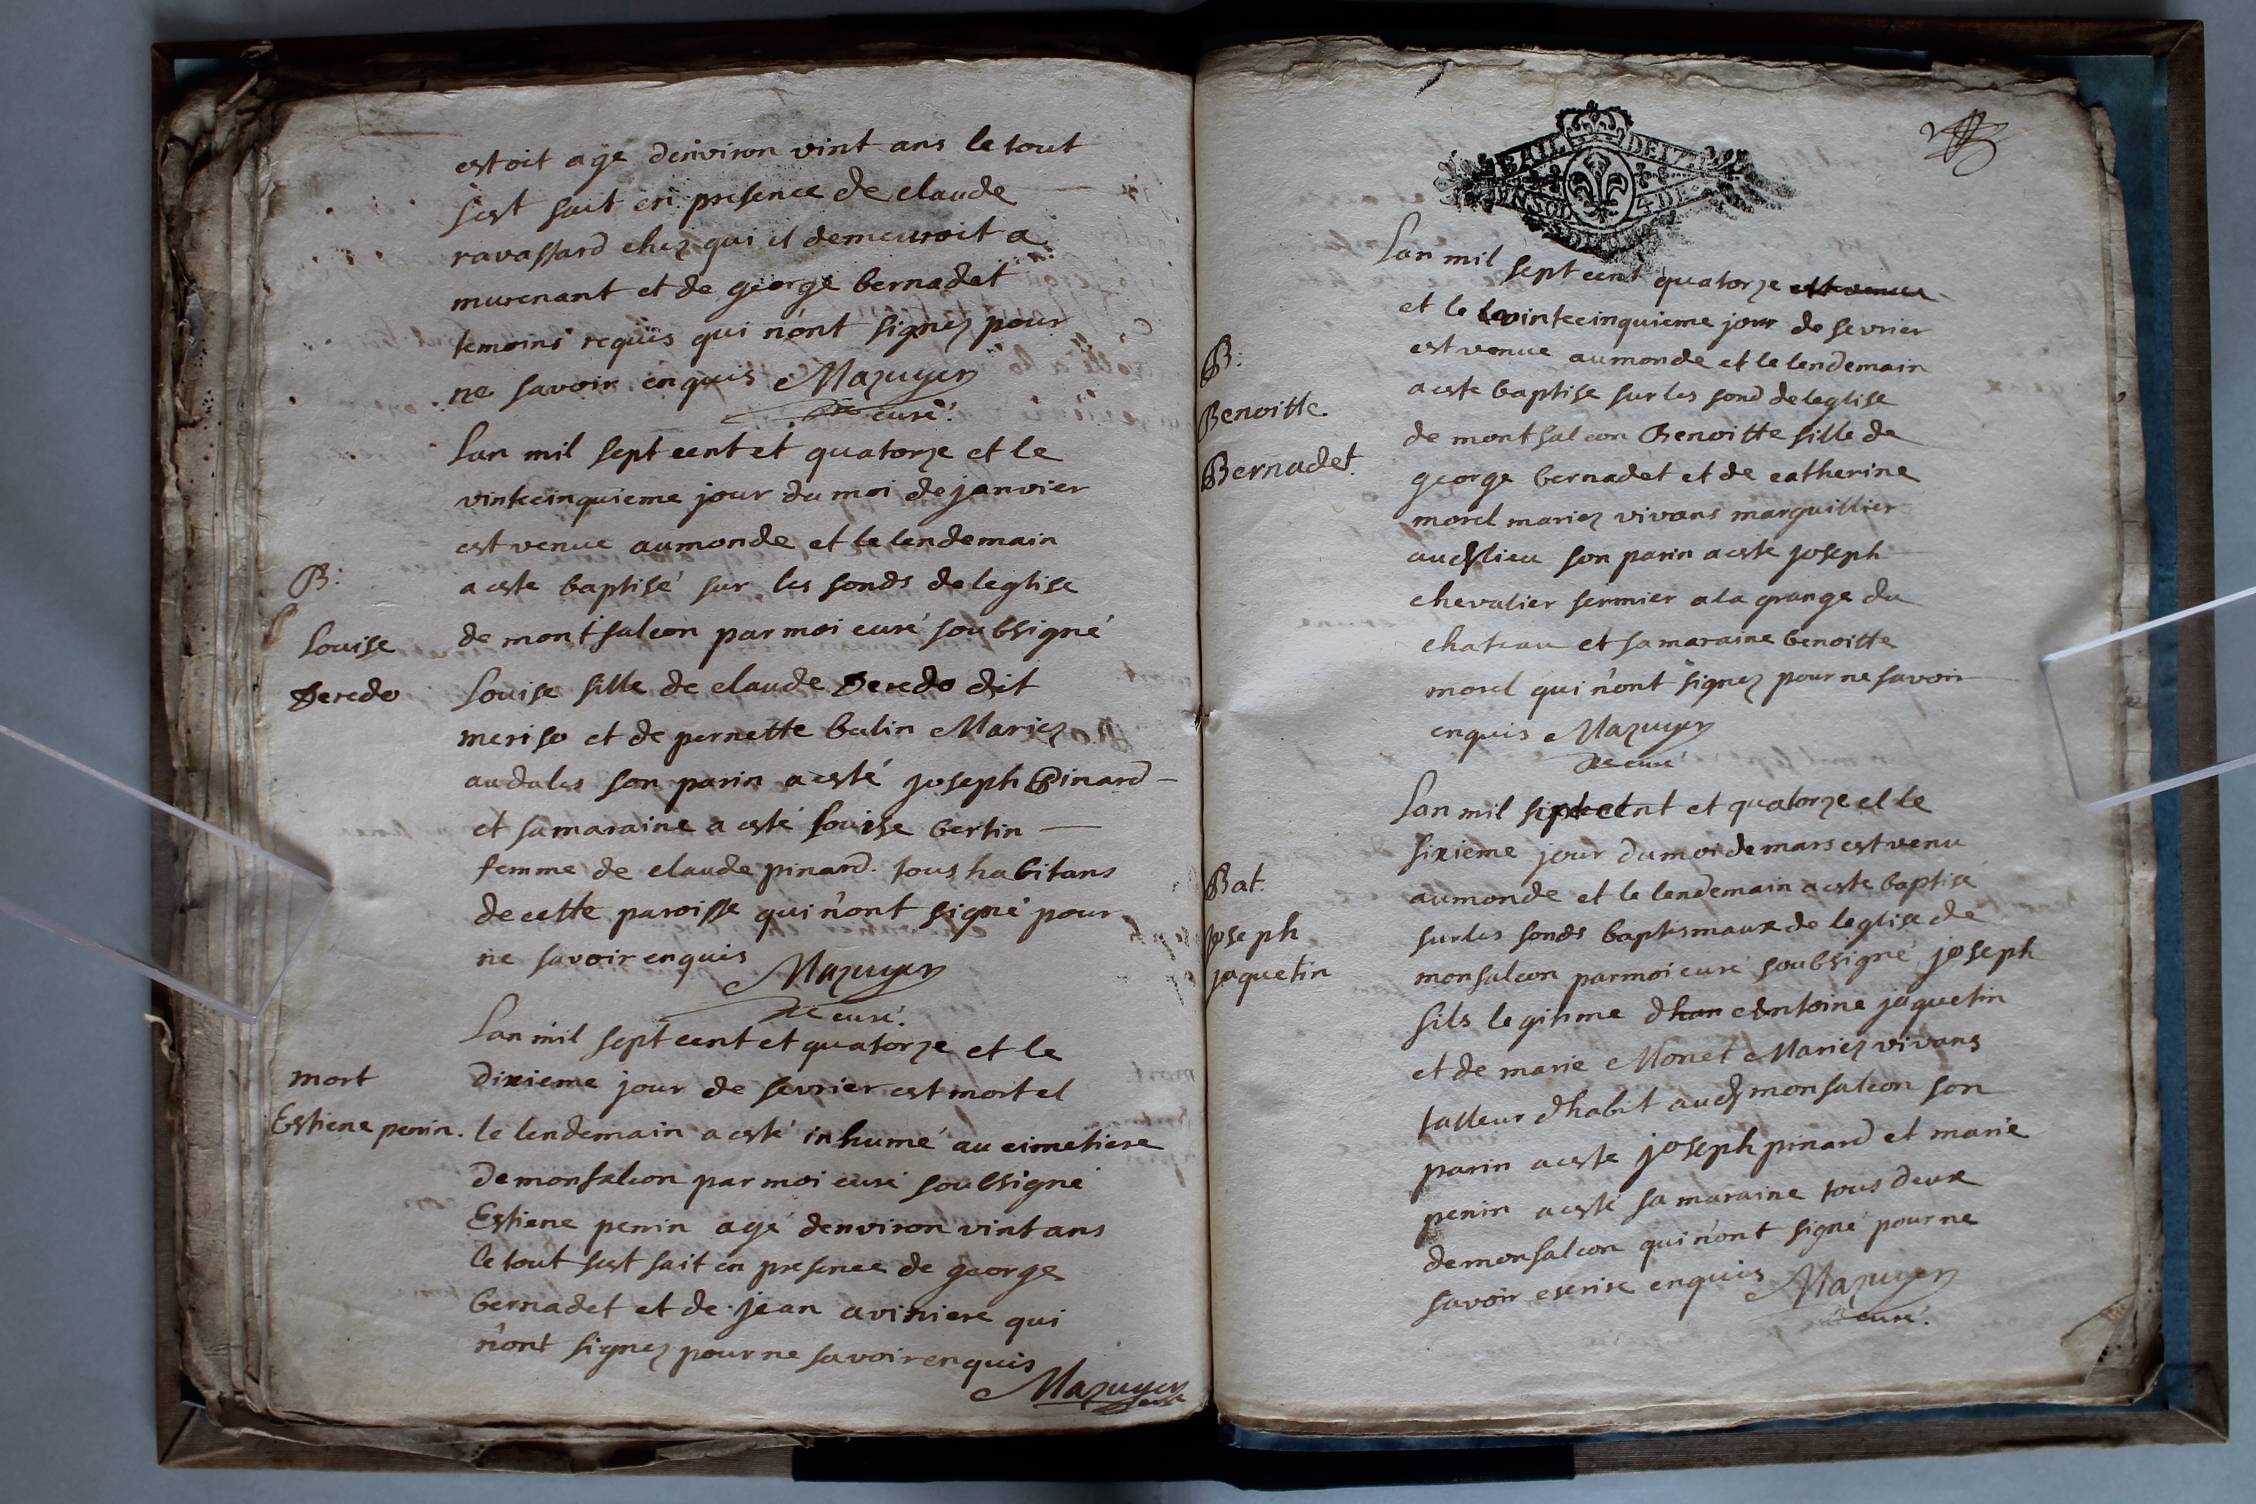 estoit age denviron vint ans le tout
sest fait en presence de claude
ravassard chez qui il demeuroit a
murenant et de george bernadet
temoins requis qui n'ont signez pour
ne savoir enquis Mazuyer
curé
Lan mil sept cent et quatorze et le
vintecinquieme jour du moi de janvier
est venue au monde et le lendemain
B:
a esté baptisé sur les fonds de leglise
Louise
de montfalcon par moi curé soubsigné
Deredo
Louise fille de claude Deredo dit
meriso et de pernette balin Mariez
audales son parin a esté joseph Pinard
et sa maraine a esté Louise bertin
femme de claude pinard tous habitans
de cette paroisse qui n'ont signé pour
ne savoir enquis Mazuyer
curé.
Lan mil sept cent et quatorze et le
mort
dixieme jour de fevrier est mort et
Estiene penin.
le lendemain a esté inhumé au cimetiere
de monfalcon par moi curé soubsigné
Estiene penin agé denviron vint ans
le tout sest fait en presence de george
bernadet et de jean aviniere qui
n'ont signez pour ne savoir enquis
Mazuyer
curé
Lan mil sept cent quatorze
et le vintecinquieme jour de fevrier
B:
est venue au monde et le lendemain
a esté baptise sur les fond de leglise
Benoitte
de montfalcon Benoitte fille de
Bernadet
george bernadet et de catherine
morel mariez vivans marguillier
aud lieu son parin a esté joseph
chevalier fermier a la grange du
chateau et sa maraine benoitte
morel qui n'ont signez pour ne savoir
enquis Mazuyer
curé
Lan mil sept cent et quatorze et le
sixieme jour du moi de mars est venu
Bat.
au monde et le lendemain a esté baptise
Joseph
sur les fonds baptismaux de leglise de
jaquetin
monfalcon par moi curé soubsigné joseph
fils legitime dhan Antoine jaquetin
et de marie Monet Mariez vivans
talleur dhabit aud monfalcon son
parin a esté joseph pinard et marie
penin a esté sa maraine tous deux
de monfalcon qui n'ont signé pour ne
savoir escrire enquis Mazuyer
curé.